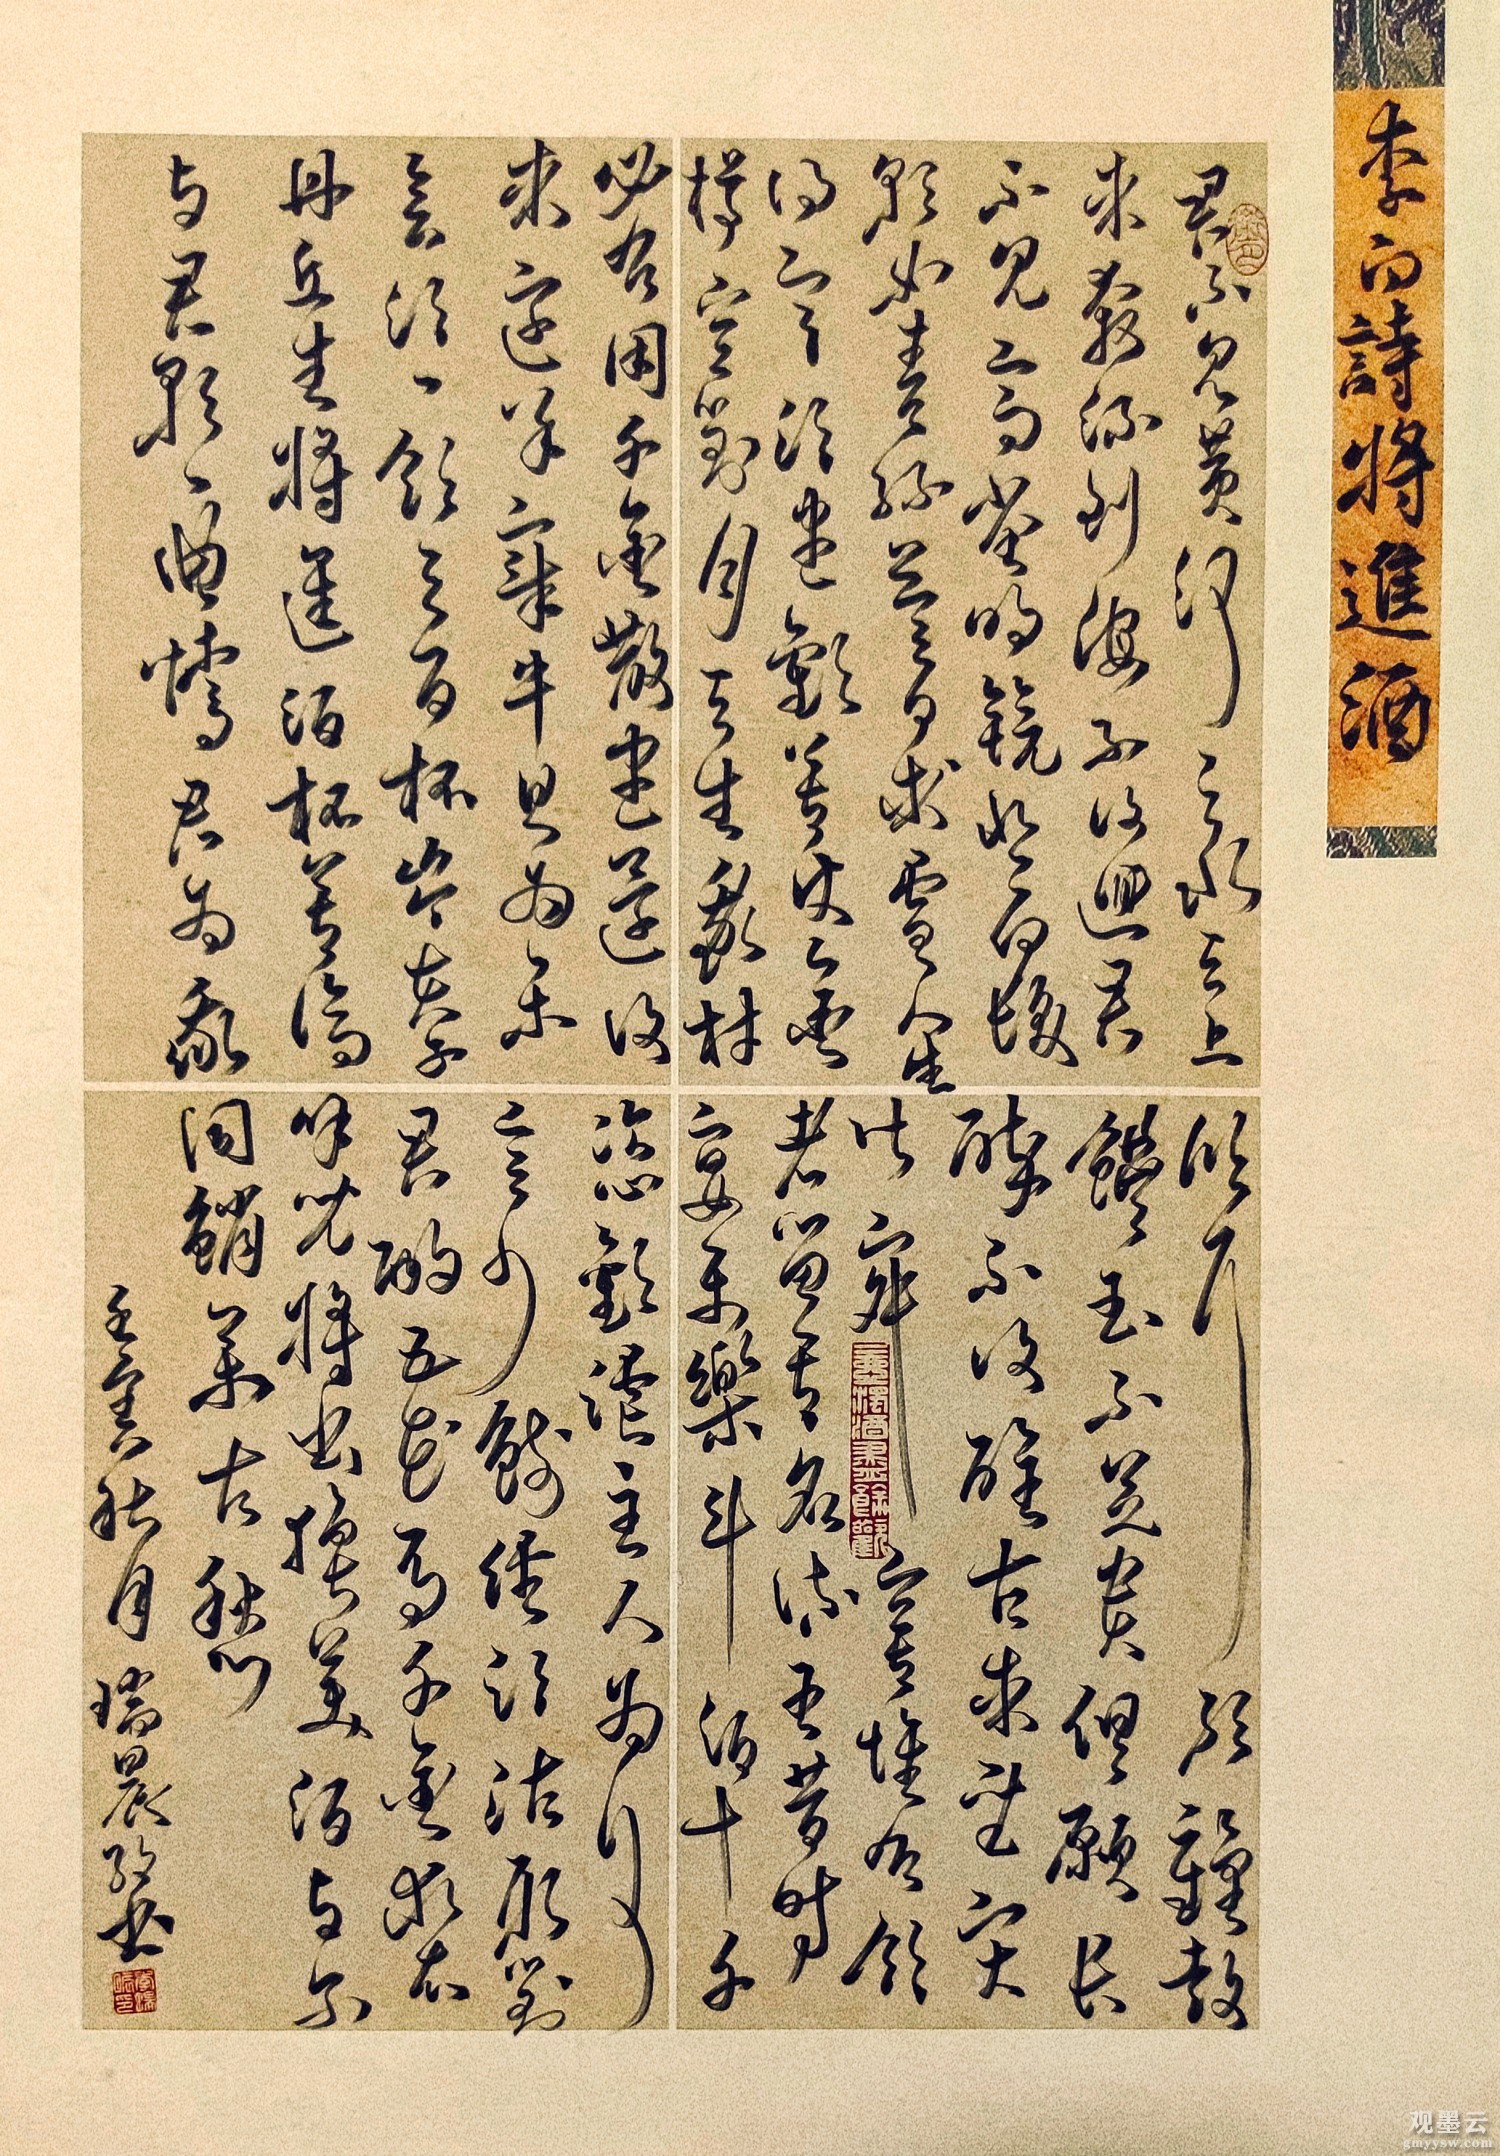 李白詩將進酒
君不見黃河之水天上
來奔流到海不復迴君
不見高堂明鏡悲白髮
朝如青絲暮成雪人生
得意須盡歡莫使金
樽空對月天生我材
必有用千金散盡還復
來烹羊宰牛且為樂
會須一飲三百杯岑夫子
丹丘生將進酒杯莫停
與君歌一曲請君為我
傾耳聽鐘鼓
饌玉不足貴但願長
醉不復醒古來聖賢
皆寂寞惟有飲
者留其名陳王昔時
宴平樂斗酒十千
恣歡謔主人為何
言少錢徑須沽取對
君酌五花馬千金裘
呼兒將出換美酒與爾
同銷萬古愁
壬寅秋月瑞晨敬書
观墨云
gmyysw.com